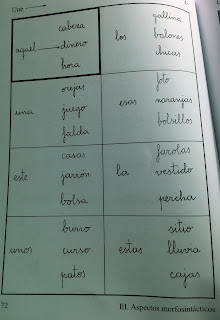 Une
6
cabeza
aquel dinero
hora
gallina
los balones
chicas
orejas
una juego
falda
foto
esas naranjas
bolsillos
casas
este jarrón
bolsa
farolas
la vestido
percha
burro
unos curso
patos
sitio
estas lluvia
cajas
72
III. Aspectos morfosintácticos